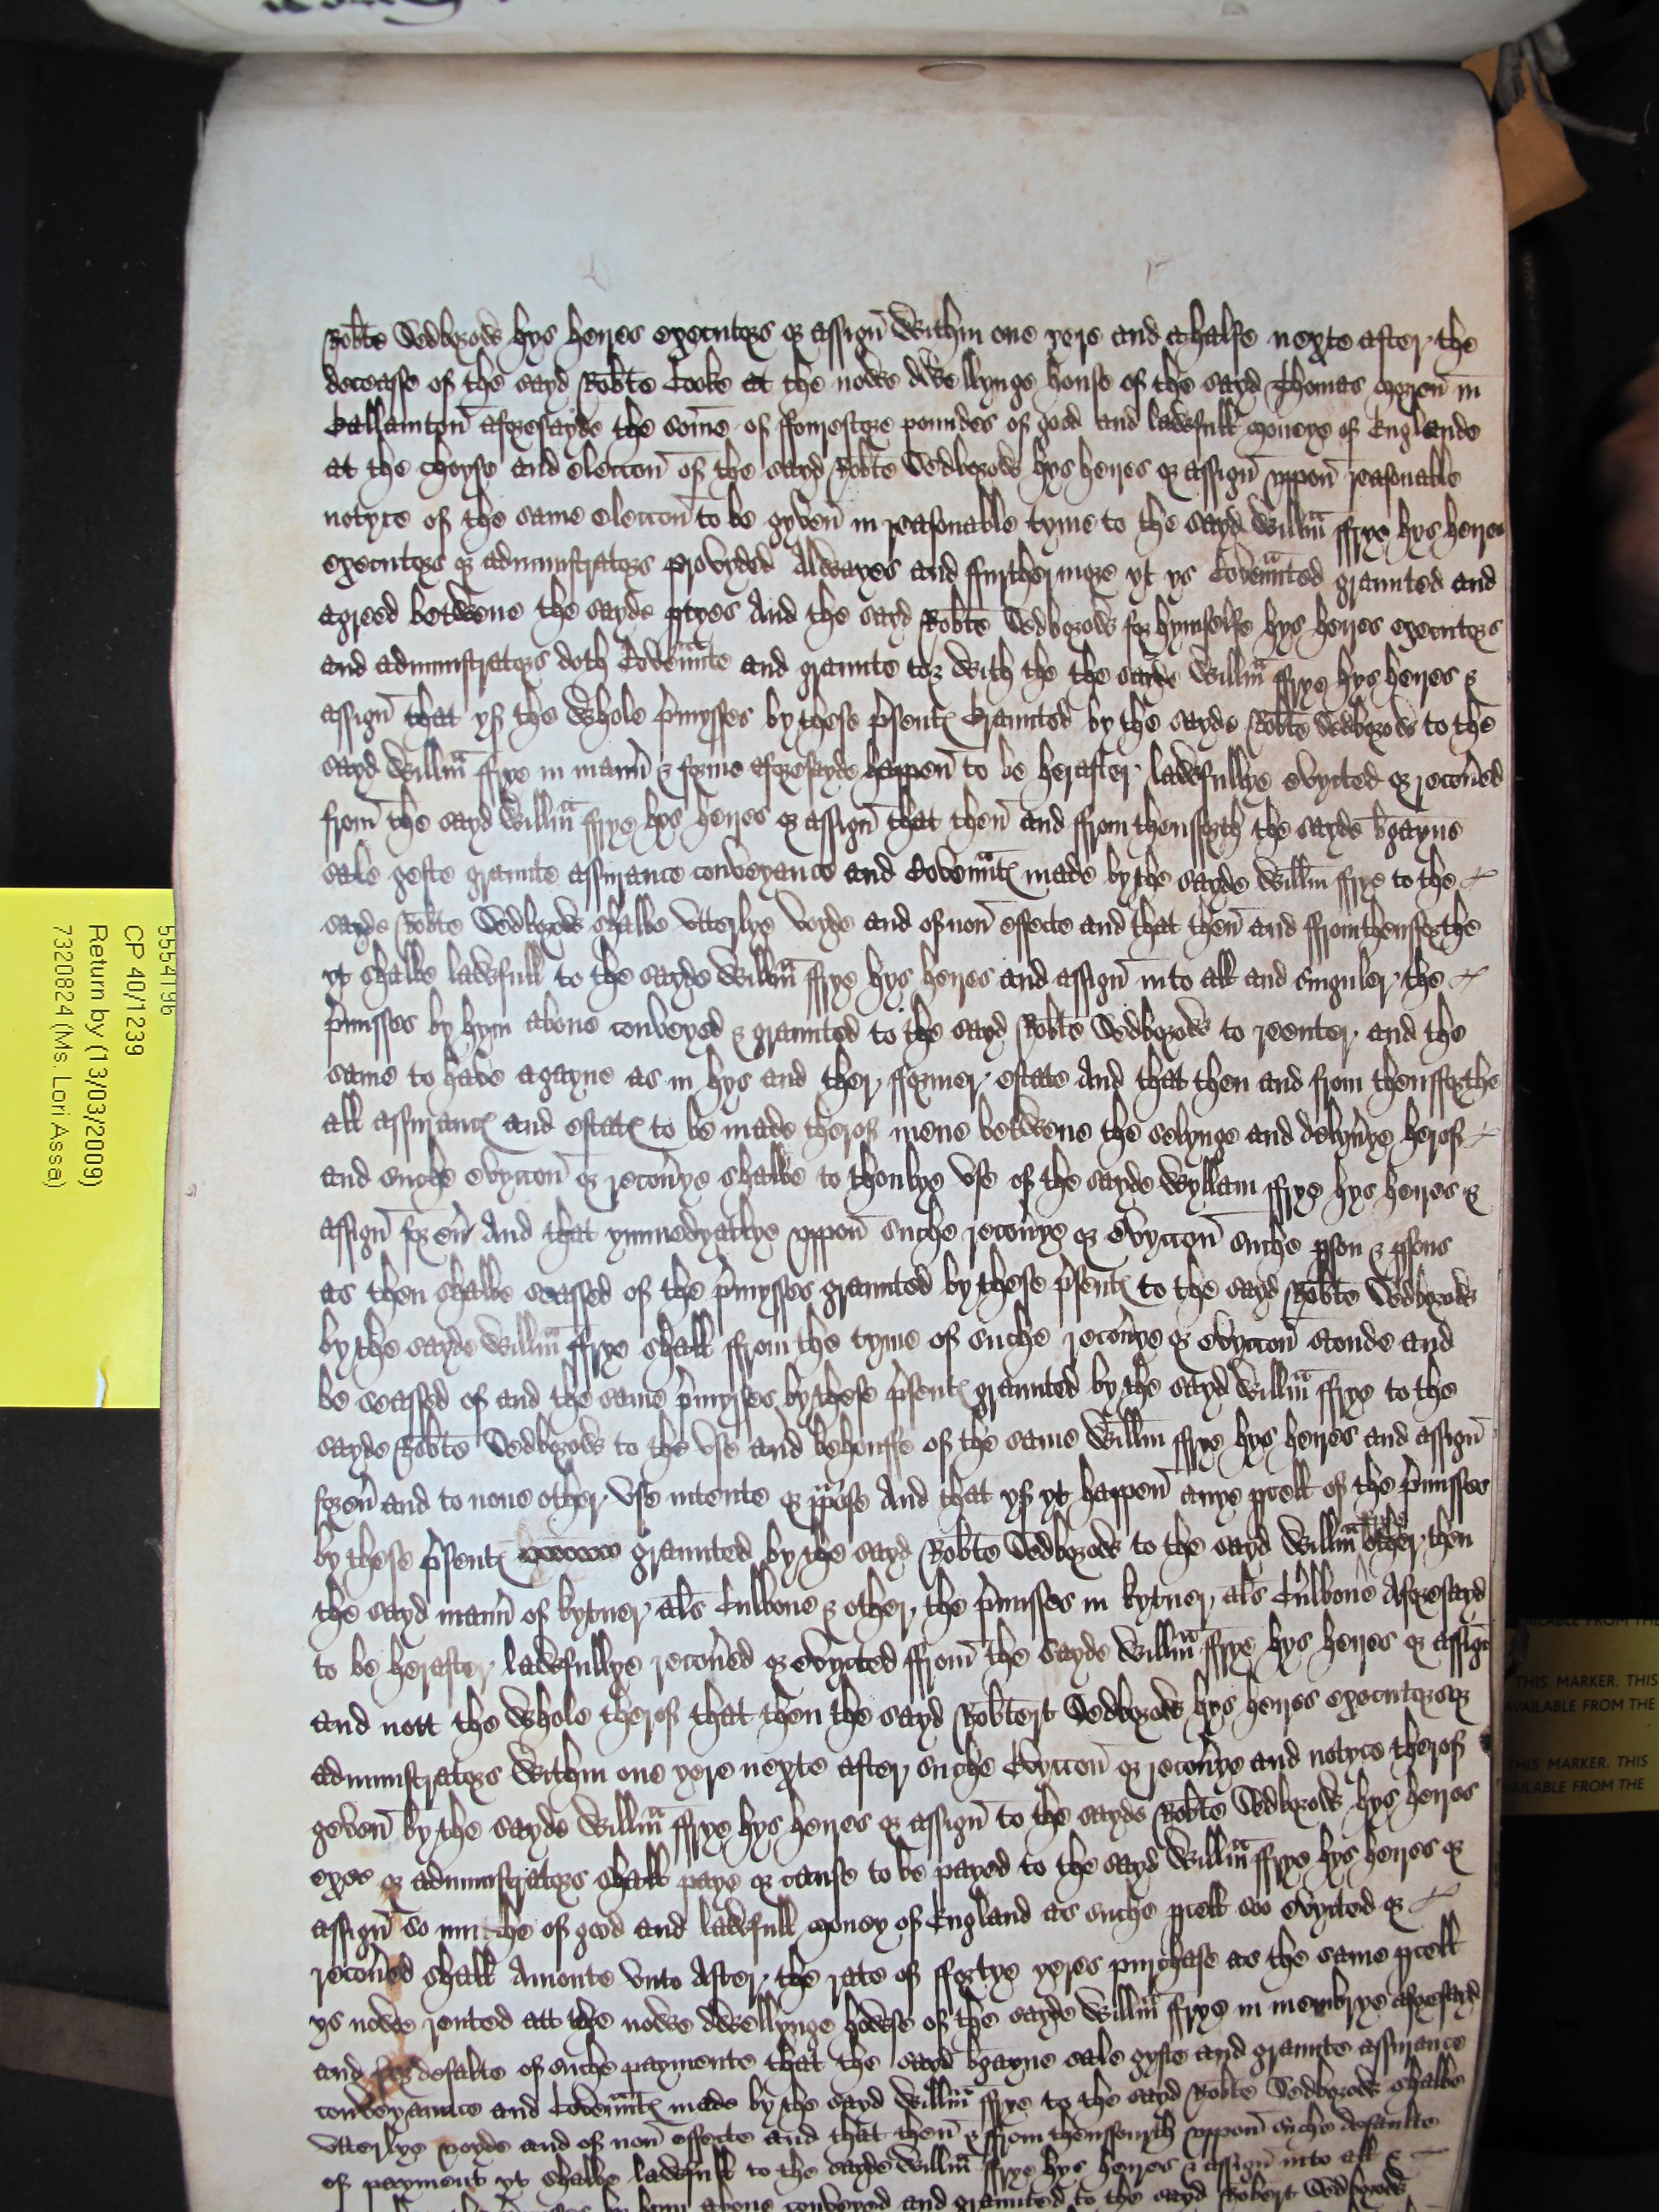 Robte Sedborow hys heyres executors or assign within one yere and a halfe nexte after the
deceasse of the sayd Robte Cooke at the nowe dwellynge house of the sayd Thomas in
aforesayde the some of powndes of good and lawfull moneye of Englande
at the choyse and eleccon of the sayd Robte Sedborow hys heyres or assign uppon reasonable
notyce of the same eleccon to be gyven in reasonable tyme to the sayd Willm ffrye hys heyres
executors or administrators provyded Alwayes and ffurthermore yt ys Covennted graunted and
agreed betwene the sayde ptyes And the sayd Robte Sedborow for hymselfe hys heyres executors
and administrators doth Covennte and graunte to & with the the sayde Willm ffrye hys heyres &
assign that yf the whole pmysses by these psentes Graunted by the sayde Robte Sedborow to the
sayd Willm ffrye in mann & forme aforesayde happen to be herafter lawfullye evycted or recoved
from the sayd Willm ffrye hys heyres or assign that then and from thensforth the sayde bgayne
sale gefte graunte assurance conveyance and Covenntes made by the sayde Willm ffrye to the
sayde Robte Sedborow shalbe utterlye voyde and of non effecte and that then and ffromthensforthe
yt shalbe lawfull to the sayde Willm ffrye hys heyres and assign into all and singuler the
pmisses by hym above conveyed & graunted to the sayd Robte Sedborow to reenter and the
same to have agayne as in hys and ther fformer estate And that then and from thensfforthe
all assurances and estates to be made therof mene betwene the selynge and delyvye herof
and suche evyccon or recovye shalbe to thonlye use of the sayde Wyllam ffrye hys heyres &
assign for ev And that ymmedyatlye uppon suche recovye or evyccon suche pson & psons
as then shalbe seassed of the pmysses graunted by these psentes to the sayd Robte Sedborow
by the sayde Willm ffrye shall ffrom the tyme of suche recovye or evyccon stonde and
be seassed of and the same pmysses by these psentes graunted by the sayd Willm ffrye to the
sayde Robte Sedborow to the use and behouffe of the same Willm ffrye hys heyres and assign
forev and to none other use intente or ppose And that yf yt happen anye pcell of the pmisses
by these psentes graunted by the sayd Robte Sedborow to the sayd Willm ffrye other then
the sayd mann of kytner als Culbone & other the pmisses in kytner als Culbone Aforesayd
to be herafter lawfullye recoved or evycted ffrom the sayde Willm ffrye hys heyres or assign
and nott the whole therof that then the sayd Robtert Sedborow hys heyres executors or
administrators within one yere nexte after suche Evyccon or recovye and notyce therof
geven by the sayde Willm ffrye hys heyres or assign to the sayde Robte Sedborow hys heyres
exec or administrators shall paye or cause to be payed to the sayd Willm ffrye hys heyres or
assign so muche of good and lawfull money of England as suche pcell soo evycted or
recoved shall Amonte unto After the rate of ffortye yeres purchase as the same pcell
ys nowe rented att the nowe dwellynge howse of the sayde Willm ffrye in membrye aforesayd
and for defalte of suche paymente that the sayd bgayne sale gyfte and graunte assurance
conveyaunce and Covenntes made by the sayd Willm ffrye to the sayd Robte Sedborow shalbe
utterlye voyde and of non effecte and that then & from thenssfourth uppon suche defaulte
of payment yt shalbe lawfull to the sayde Willm ffrye hys heyres & assign into all &
by hym above conveyed and graunted to the sayd Robert Sedborow
5554196
CP 40/1239
Return by (13/03/2009)
7320824 (Ms. Lori Assa)
AVAILABLE FROM THE
THIS MARKER. THIS
AVAILABLE FROM THE
THIS MARKER. THIS
AVAILABLE FROM THE